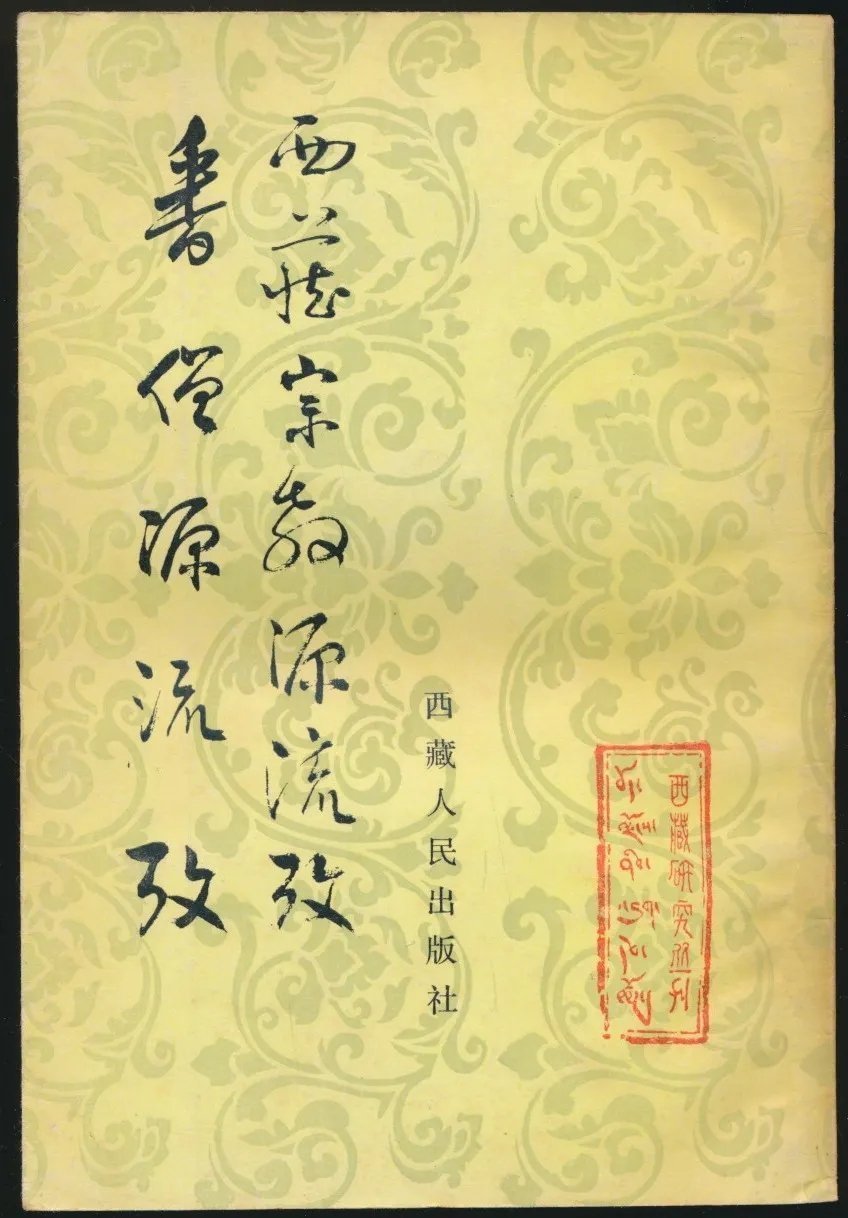 西藏宗教源流攷
番僧源流攷
西藏人民出版社
西藏研究丛刊